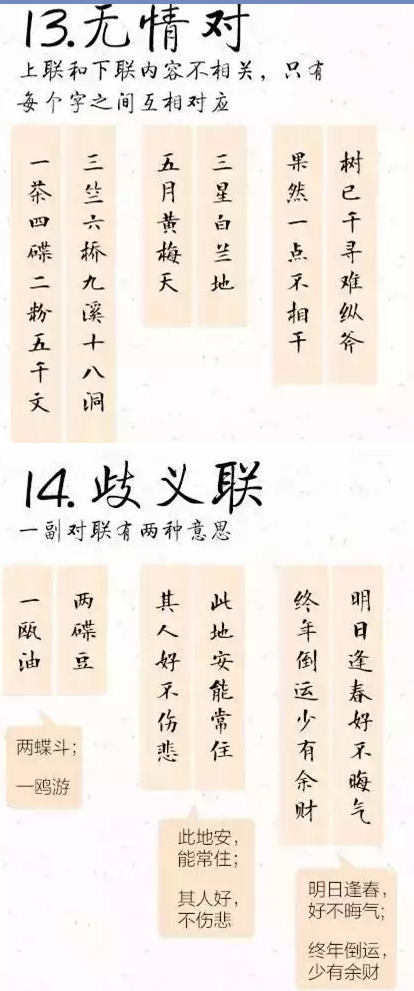 13.无情对
上联和下联内容不相关，只有
每个字之间互相对应
树已千寻难纵斧
果然一点不相干
三星白兰地
五月黄梅天
三竺六桥九溪十八洞
一茶四碟二粉五千文
14.歧义联
一副对联有两种意思
明日逢春好不晦气
终年倒运少有余财
明日逢春，
好不晦气；
终年倒运，
少有余财
此地安能常住
其人好不伤悲
此地安，
能常住；
其人好，
不伤悲
两碟豆
一瓯油
两蝶斗；
一鸥游